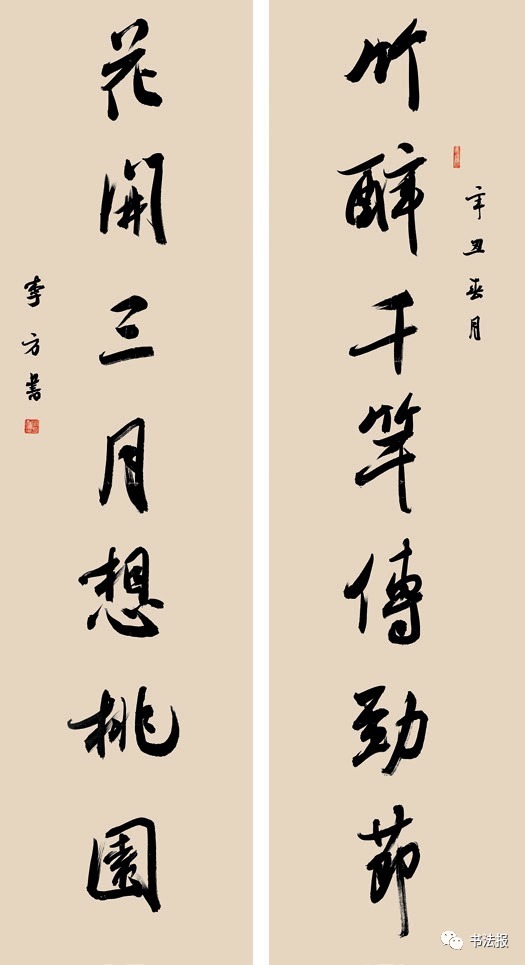 竹醉千竿傳勁節
辛丑春月
花開三月想桃園
李方書
书法报